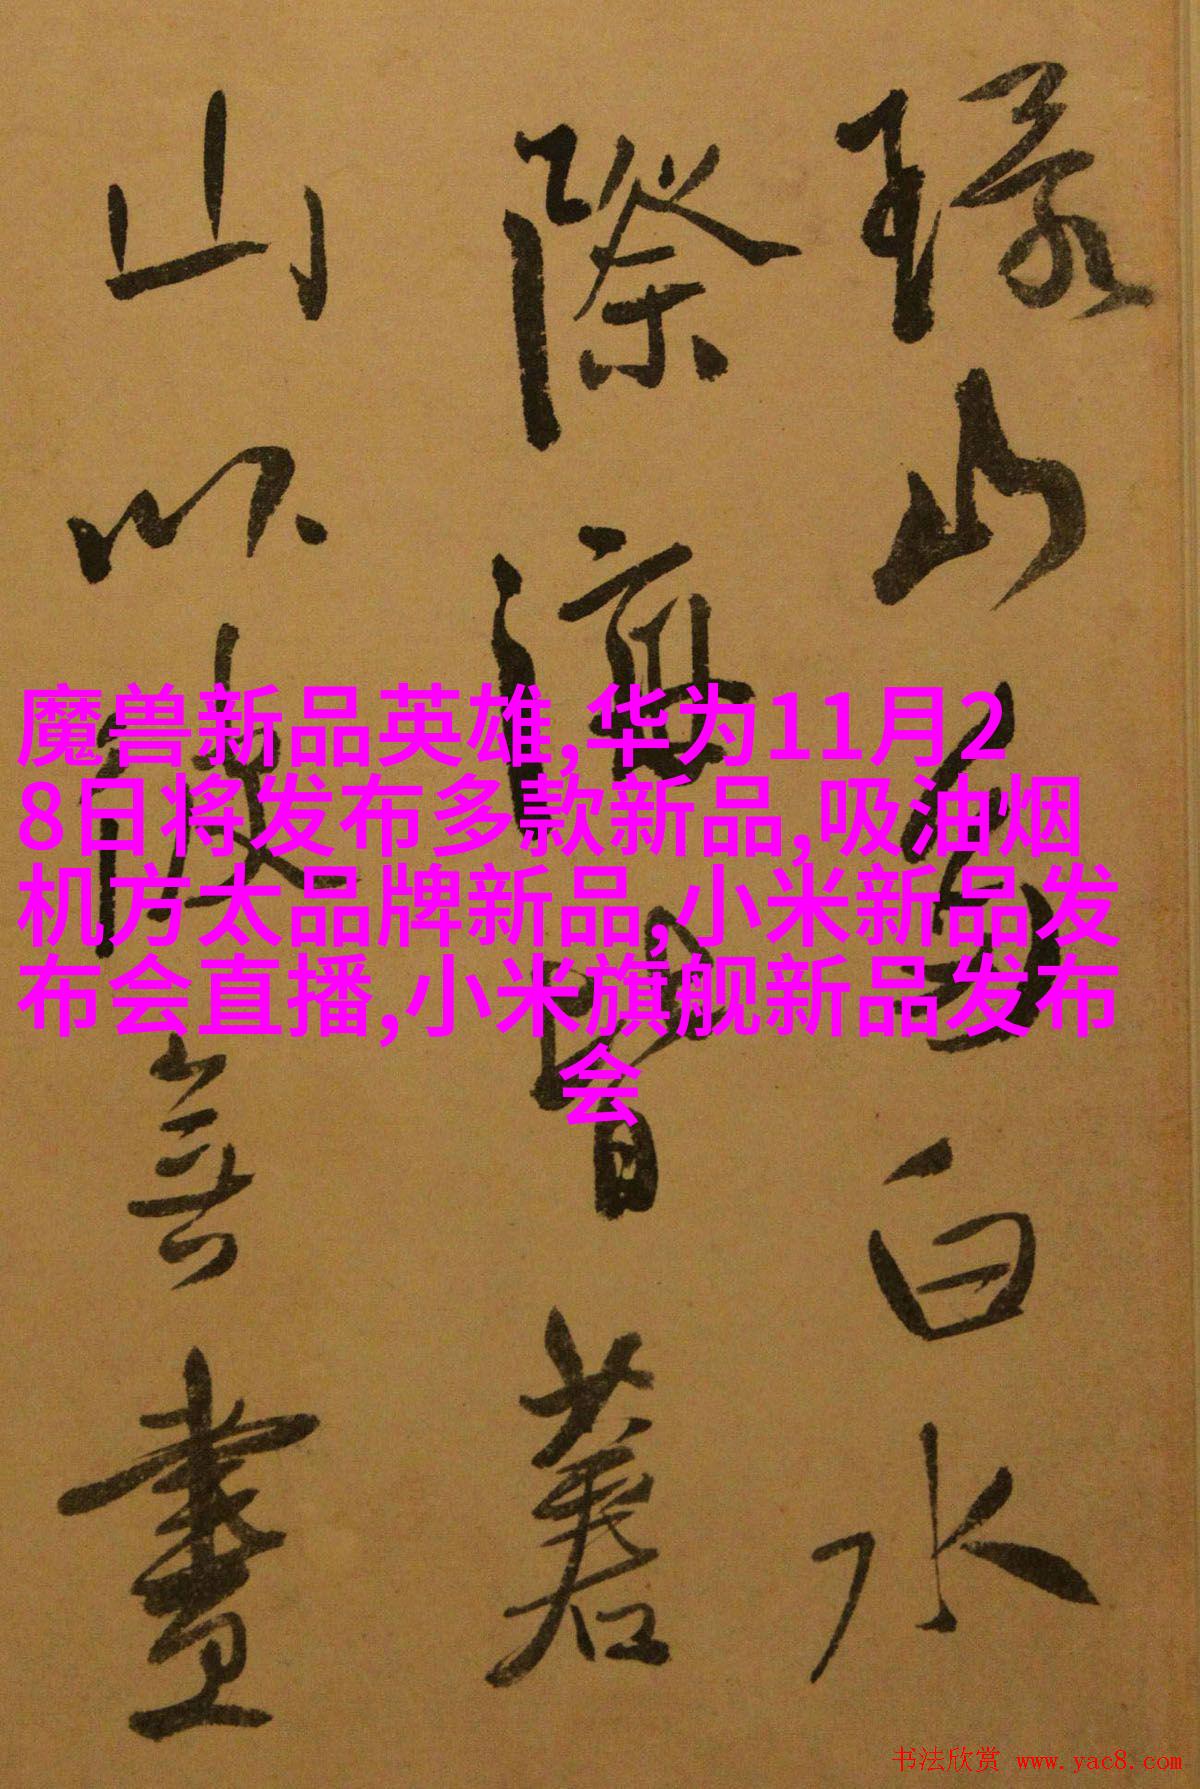 魔兽新品英雄,华为11月2
8日将发布多款新品,吸油烟
机方太品牌新品,小米新品发
布会直播,小米旗舰新品发布
会
山白水
際海皆著
山以後無畫
书法欣赏 www.yac8.com